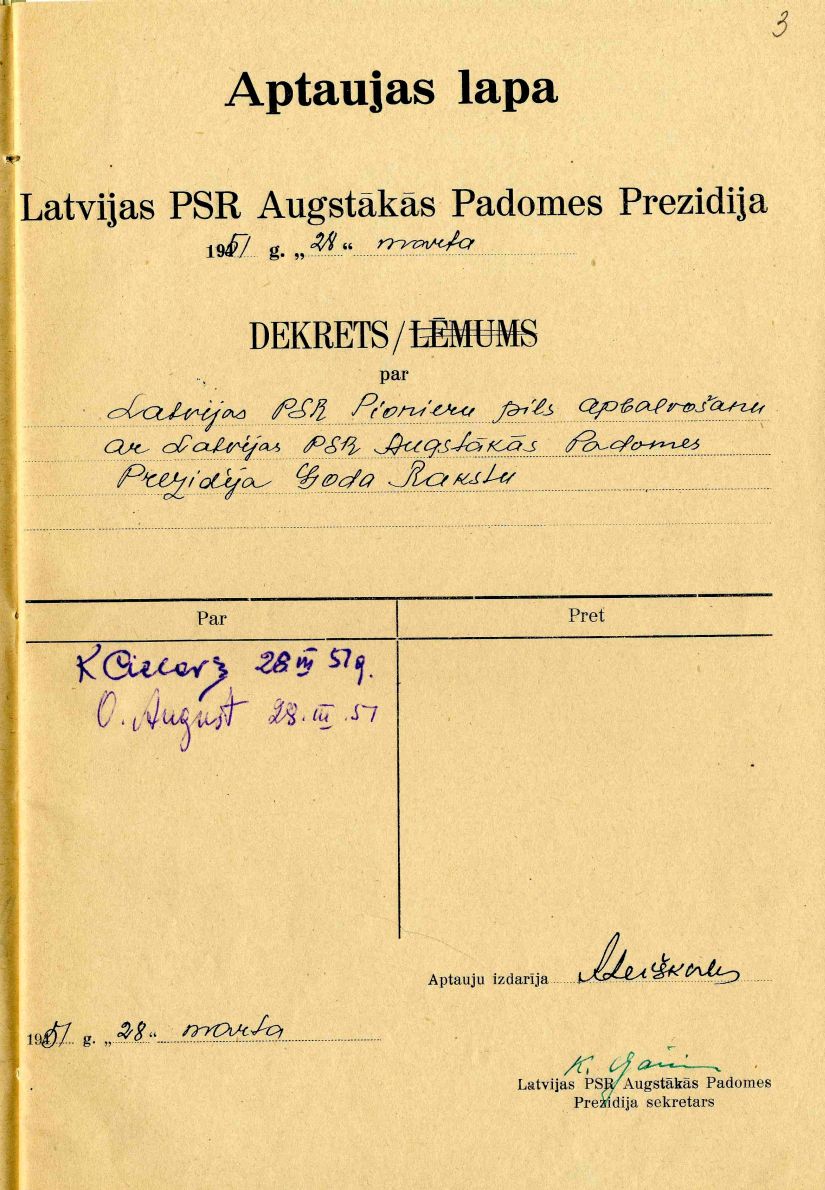 3
Aptaujas lapa
Latvijas PSR Augstākās Padomes Prezidija
1951 g. „28“ marta
DEKRETS/LĒMUMS
par
Latvijas PSR Pionieru pils apbalvošanu
ar Latvijas PSR Augstākās Padomes
Prezidija Goda Rakstu
Par Pret
K 28 III 51 g.
O. August 28. III. 51
Aptauju izdarīja
1951 g. „28“ marta
K.
Latvijas PSR Augstākās Padomes
Prezidija sekretars